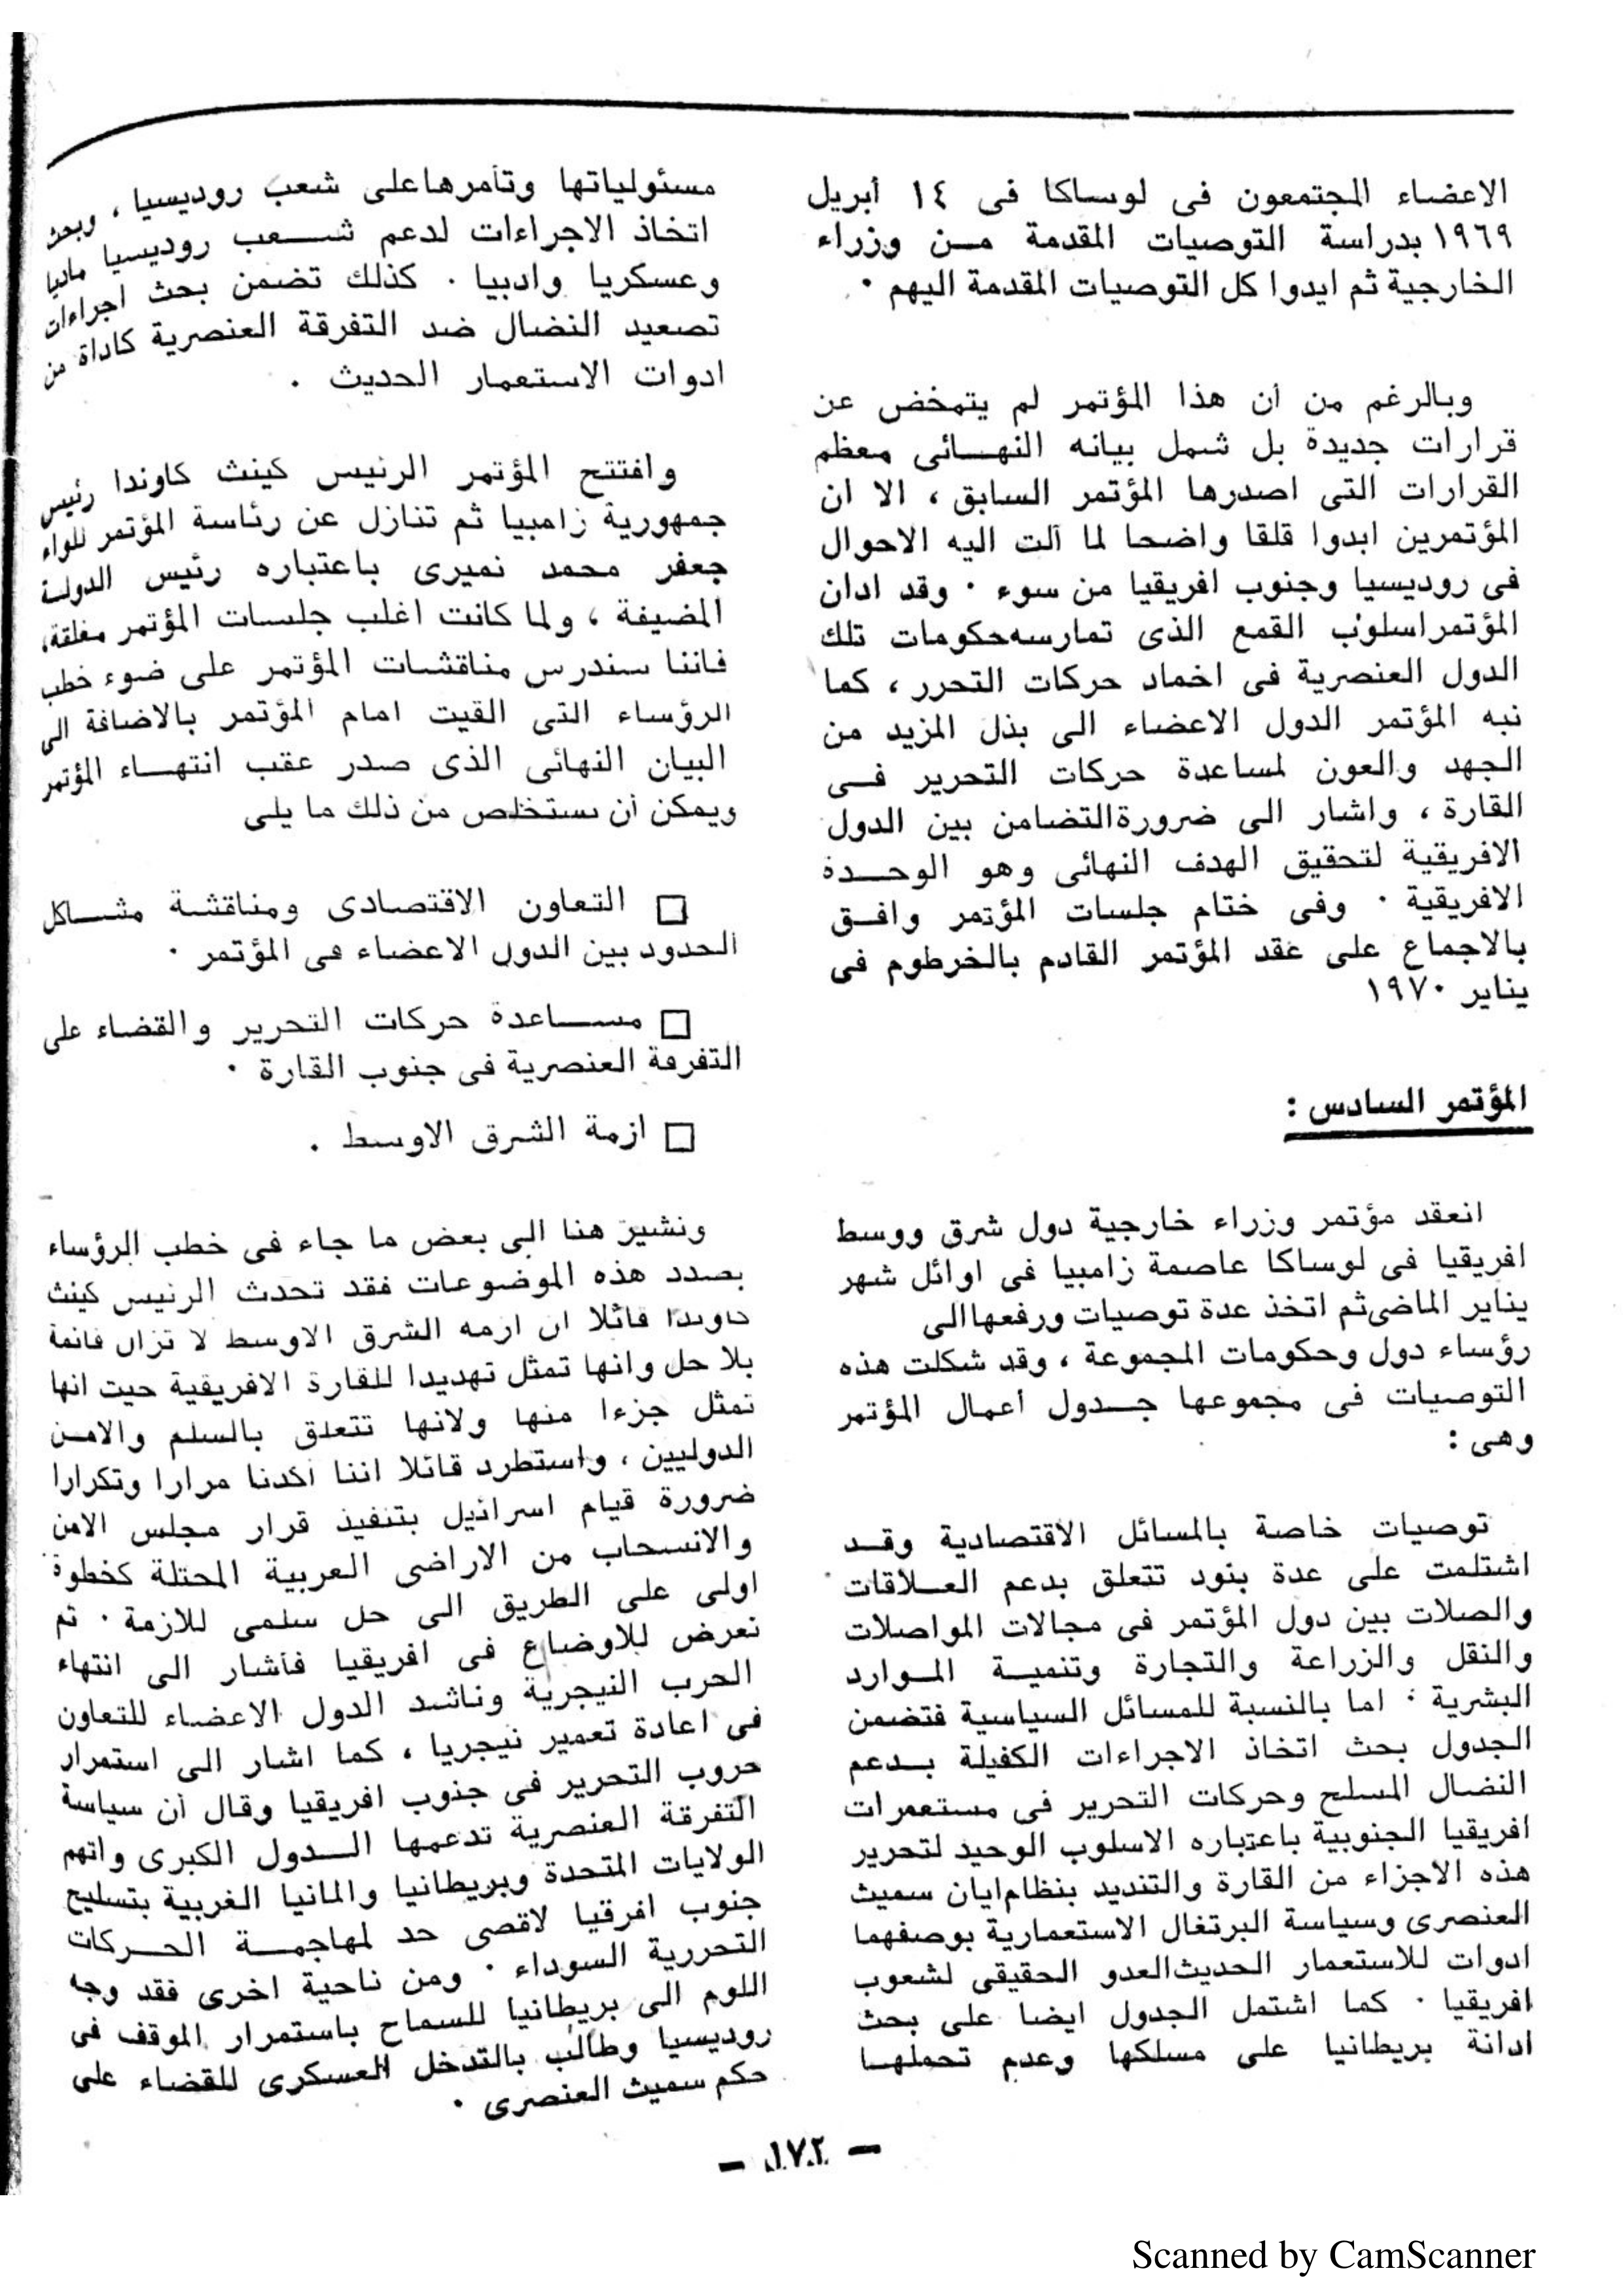 الاعضاء المجتمعون فى لوساكا فى ١٤ أبريل
١٩٦٩ بدراسة التوصيات المقدمة مــن وزراء
الخارجية ثم ايدوا كل التوصيات المقدمة اليهم ·
وبالرغم من ان هذا المؤتمر لم يتمخض عن
قرارات جديدة بل شمل بيانه النهــائى معظم
القرارات التى اصدرها المؤتمر السابق ، الا ان
المؤتمرين ابدوا قلقا واضحا لما آلت اليه الاحوال
فى روديسيا وجنوب افريقيا من سوء · وقد ادان
المؤتمر اسلوب القمع الذى تمارسه حكومات تلك
الدول العنصرية فى اخماد حركات التحرر ، كما
نبه المؤتمر الدول الاعضاء الى بذل المزيد من
الجهد والعون لمساعدة حركات التحرير فــى
القارة ، واشار الى ضرورة التضامن بين الدول
الافريقية لتحقيق الهدف النهائى وهو الوحــدة
الافريقية · وفى ختام جلسات المؤتمر وافــق
بالاجماع على عقد المؤتمر القادم بالخرطوم فى
يناير ١٩٧٠
المؤتمر السادس :
انعقد مؤتمر وزراء خارجية دول شرق ووسط
افريقيا فى لوساكا عاصمة زامبيا فى اوائل شهر
يناير الماضى ثم اتخذ عدة توصيات ورفعها الى
رؤساء دول وحكومات المجموعة ، وقد شكلت هذه
التوصيات فى مجموعها جــدول أعمال المؤتمر
وهى :
توصيات خاصة بالمسائل الاقتصادية وقــد
اشتلمت على عدة بنود تتعلق بدعم العــلاقات
والصلات بين دول المؤتمر فى مجالات المواصلات
والنقل والزراعة والتجارة وتنميــة المــوارد
البشرية · اما بالنسبة للمسائل السياسية فتضمن
الجدول بحث اتخاذ الاجراءات الكفيلة بــدعم
النضال المسلح وحركات التحرير فى مستعمرات
افريقيا الجنوبية باعتباره الاسلوب الوحيد لتحرير
هذه الاجزاء من القارة والتنديد بنظام ايان سميث
العنصرى وسياسة البرتغال الاستعمارية بوصفهما
ادوات للاستعمار الحديث العدو الحقيقى لشعوب
افريقيا · كما اشتمل الجدول ايضا على بحث
ادانة بريطانيا على مسلكها وعدم تحملهــا
مسئولياتها وتآمرها على شعب روديسيا ، وبحث
اتخاذ الاجراءات لدعم شــعب روديسيا ماديا
وعسكريا وادبيا · كذلك تضمن بحث اجراءات
تصعيد النضال ضد التفرقة العنصرية كاداة من
ادوات الاستعمار الحديث ·
وافتتح المؤتمر الرئيس كينث كاوندا رئيس
جمهورية زامبيا ثم تنازل عن رئاسة المؤتمر للواء
جعفر محمد نميرى باعتباره رئيس الدولة
المضيفة ، ولما كانت اغلب جلسات المؤتمر مغلقة،
فاننا سندرس مناقشات المؤتمر على ضوء خطب
الرؤساء التى القيت امام المؤتمر بالاضافة الى
البيان النهائى الذى صدر عقب انتهــاء المؤتمر
ويمكن أن نستخلص من ذلك ما يلى
□ التعاون الاقتصادى ومناقشة مشــاكل
الحدود بين الدول الاعضاء فى المؤتمر ·
□ مســاعدة حركات التحرير والقضاء على
التفرقة العنصرية فى جنوب القارة ·
□ ازمة الشرق الاوسط ·
ونشير هنا الى بعض ما جاء فى خطب الرؤساء
بصدد هذه الموضوعات فقد تحدث الرئيس كينث
كاوندا قائلا ان ازمه الشرق الاوسط لا تزال قائمة
بلا حل وانها تمثل تهديدا للقارة الافريقية حيث انها
تمثل جزءا منها ولانها تتعلق بالسلم والامــن
الدوليين ، واستطرد قائلا اننا أكدنا مرارا وتكرارا
ضرورة قيام اسرائيل بتنفيذ قرار مجلس الامن
والانسحاب من الاراضى العربية المحتلة كخطوة
اولى على الطريق الى حل سلمى للازمة · ثم
تعرض للاوضاع فى افريقيا فأشار الى انتهاء
الحرب النيجرية وناشد الدول الاعضاء للتعاون
فى اعادة تعمير نيجريا ، كما اشار الى استمرار
حروب التحرير فى جنوب افريقيا وقال أن سياسة
التفرقة العنصرية تدعمها الــدول الكبرى واتهم
الولايات المتحدة وبريطانيا والمانيا الغربية بتسليح
جنوب افرقيا لاقصى حد لمهاجمــة الحــركات
التحررية السوداء · ومن ناحية اخرى فقد وجه
اللوم الى بريطانيا للسماح باستمرار الموقف فى
روديسيا وطالب بالتدخل العسكرى للقضاء على
حكم سميث العنصرى ·
— ١٧٢ —
Scanned by CamScanner